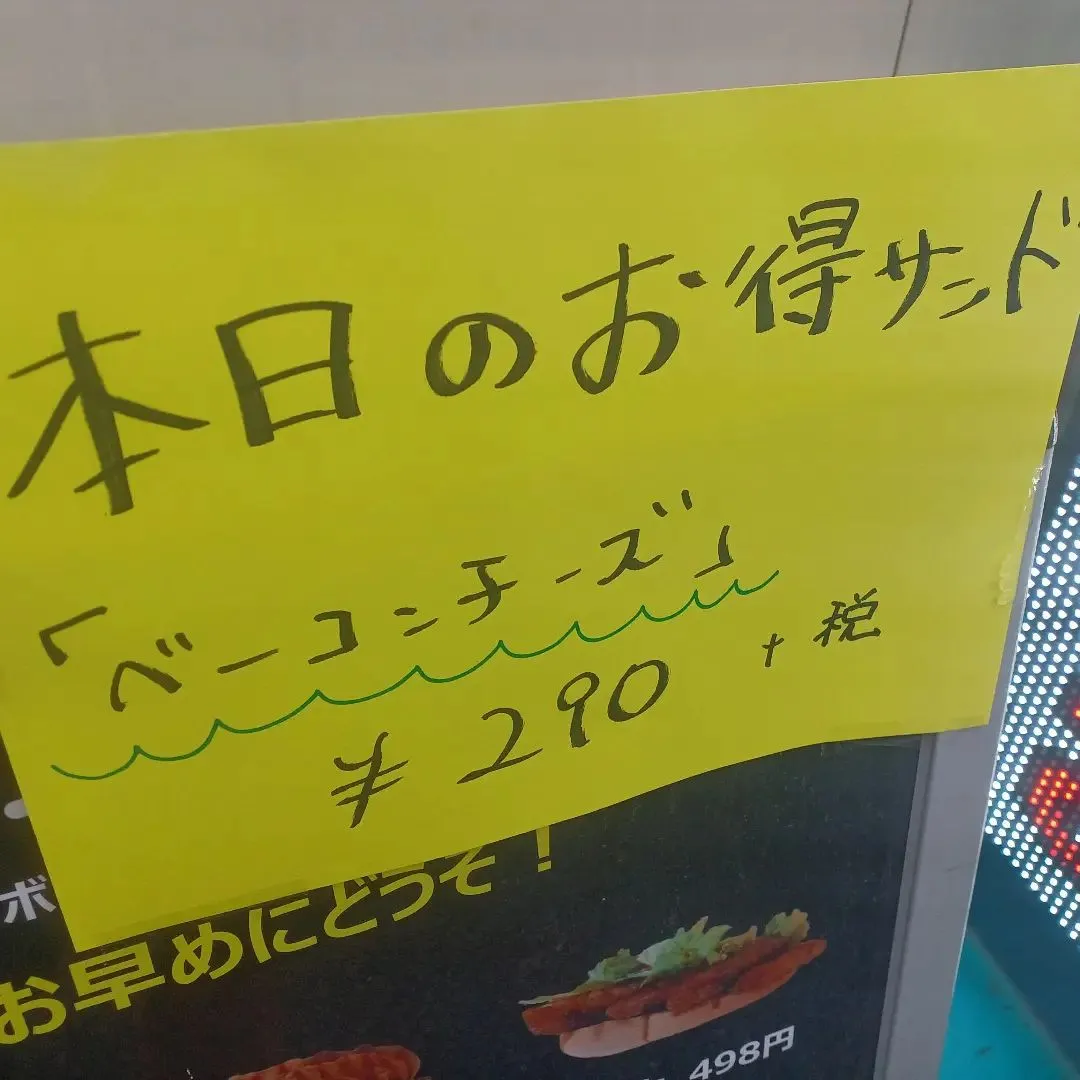 本日のお得サンド
「ベーコンチーズ」
¥290 +税
ボ
お早めにどうぞ！
498円